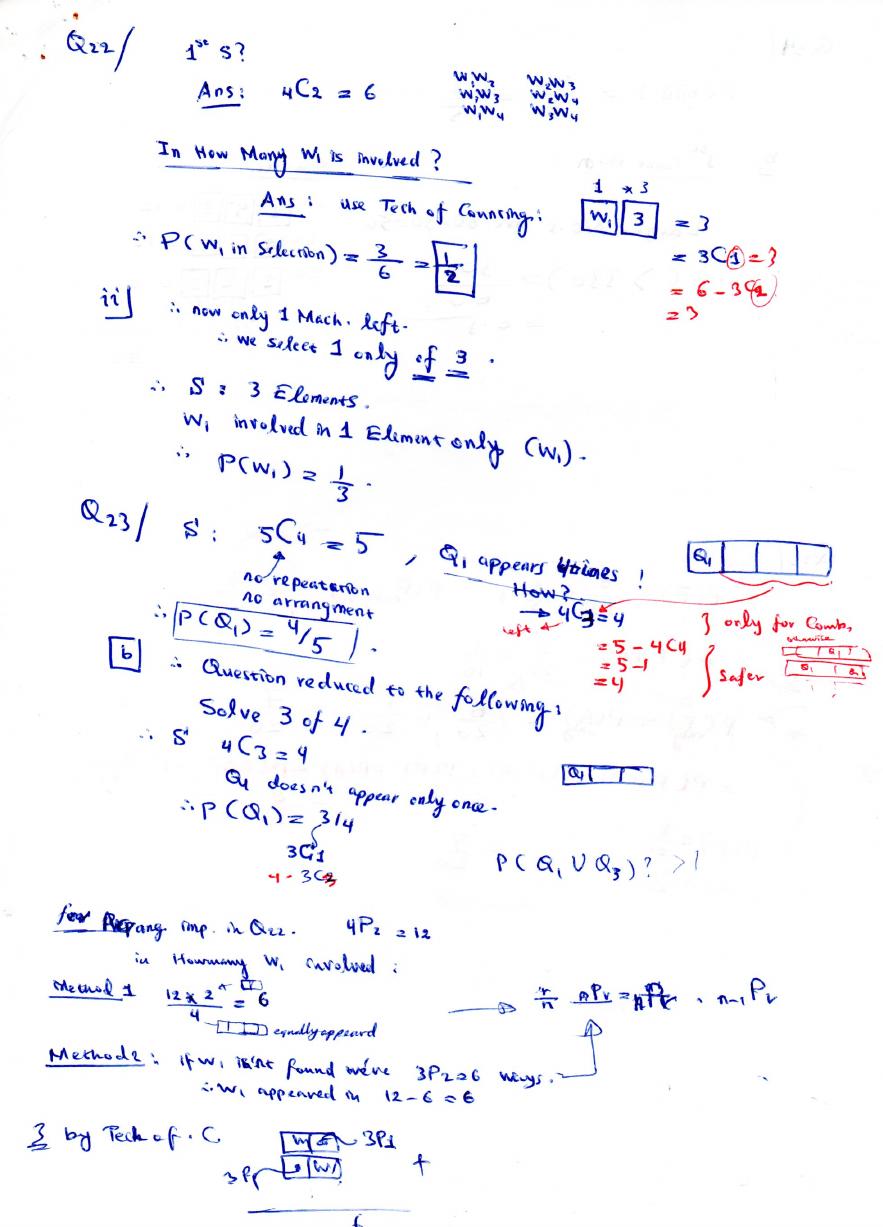 Q22/ 1st S?
Ans: 4C2 = 6
W1W2 W2W3
W1W3 W2W4
W1W4 W3W4
In How Many W1 is involved?
Ans: use Tech of Counting:
1 * 3
W1 3 = 3
= 3C1 = 3
= 6 - 3C2
= 3
∴ P(W1 in Selection) = 3/6 = 1/2
ii] ∴ now only 1 Mach. left.
∴ we select 1 only of 3.
∴ S: 3 Elements.
W1 involved in 1 Element only (W1).
∴ P(W1) = 1/3.
Q23/ S: 5C4 = 5, Q1 appears 4 times!
Q1
no repeatation
no arrangment
How?
→ 4C3 = 4
left
3 only for Comb,
∴ P(Q1) = 4/5.
= 5 - 4C4
= 5-1
= 4
Safer
b ∴ Question reduced to the following:
Solve 3 of 4.
∴ S 4C3 = 4
Q1 doesn't appear only once.
Q1
∴ P(Q1) = 3/4
3C1
4 - 3C3
P(Q1 ∪ Q3)? >1
for Arrang imp. in Q22. 4P2 = 12
in Howmany W1 involved:
Method 1 12 * 2 / 4 = 6
equally appeard
→ r/n nPr = nPr - n-1Pr
Method 2: if W1 isn't found we've 3P2=6 ways.
∴ W1 appeared in 12-6=6
3 by Tech of. C.
3P1
3P1 W1 +
6